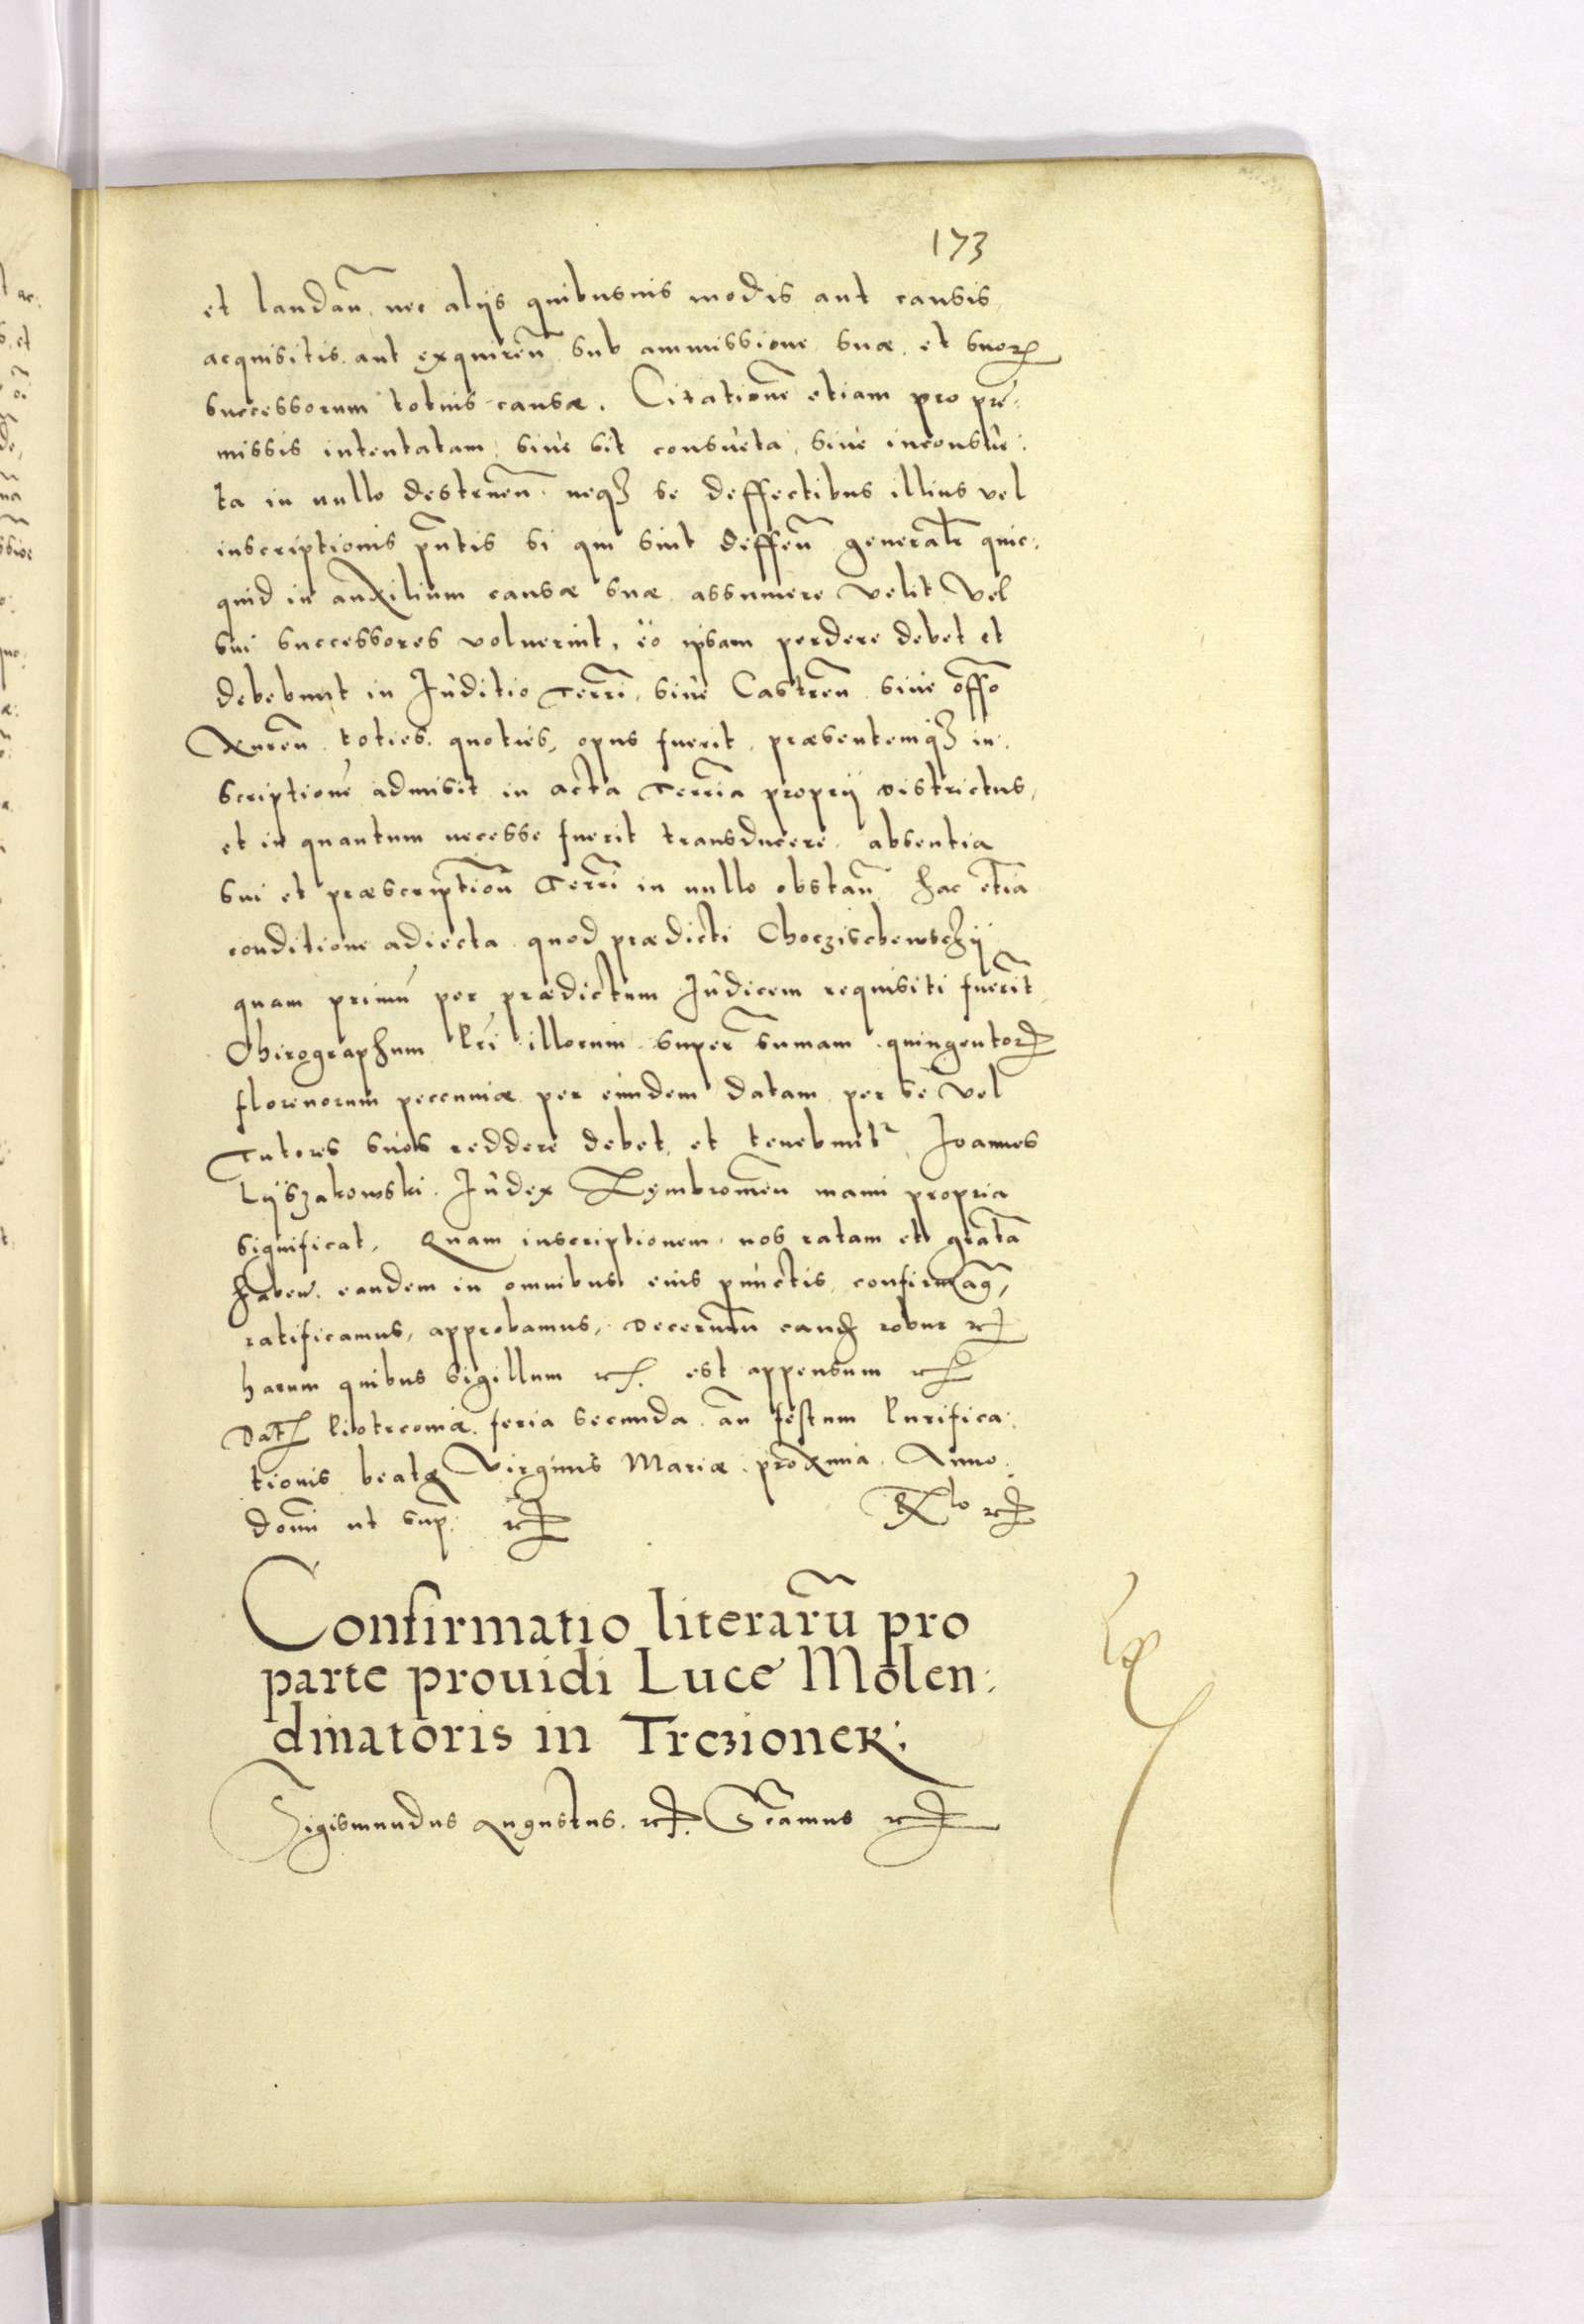 173
et laudan̄. nec alijs quibusuis modis aut causis
acquisitis aut exquiren̄ sub ammissione suæ et suoꝝ
successorum totius causæ. Citationē etiam pro pre:
missis intentatam, siue sit consueta, siue inconsue:
ta in nullo destruen̄. neqꝫ se deffectibus illius vel
inscriptionis pn̄tis si qui sint deffen̄ generalr̄ quic:
quid in auxilium causæ suæ assumere velit vel
sui successores voluerint, eo ipsam perdere debet et
debebunt in Iuditio Terrī, siue Castren̄ siue off̄o
toties quoties, opus fuerit, præsentemqꝫ in:
scriptionē admisit in acta Terrīa proprij districtus,
et in quantum necesse fuerit transducere. absentia
sui et præscriptioū Terrī in nullo obstan̄ hac etiā
conditione adiecta quod prædicti Choczischewschij
quam primū per prædictum Iudicem requisiti fuerīt
Chirographum Pr̄i illorum super sumam quingentoꝝ
florenorum peccuniæ per eundem datam per se vel
Tutores suos reddere debet et tenebuntr Ioannes
Lyszakowski Iudex Zymbromen̄ manu propria
significat. Quam inscriptionem nos ratam et gratā
haben̄. eandem in omnibus eius punctis, confirmaꝰ,
ratificamus, approbamus, Decernim̄ eandꝫ robur ꝛc
harum quibus sigillum ꝛc. est appensum ꝛc
Dat̄ Piotrcouiæ feria secunda an̄ festum Purifica:
tionis beatæ Virginis Mariæ proxima. Anno
domī ut sup. ꝛc Rx̄to ꝛc
Confirmatio literarū pro
parte prouidi Luce Molen:
dinatoris in Trczionek:
Sigismundus Augustus. ꝛc. ꝛc